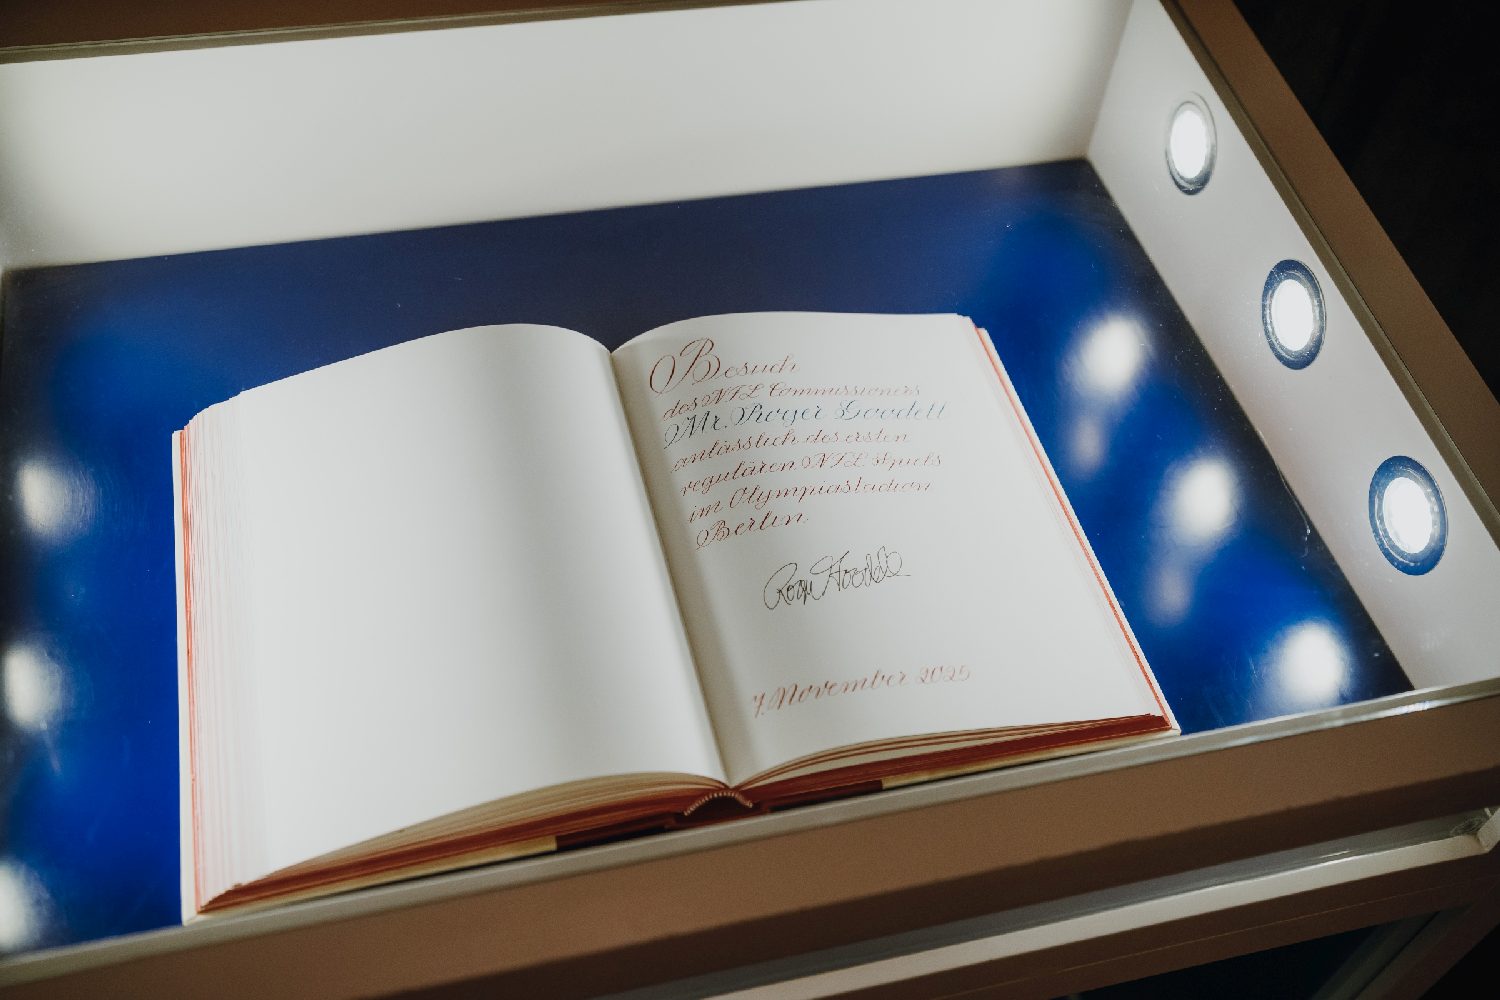 Besuch
des NFL Commissioners
Mr. Roger Goodell
anlässlich des ersten
regulären NFL Spiels
im Olympiastadion
Berlin
Roger Goodell
7. November 2025